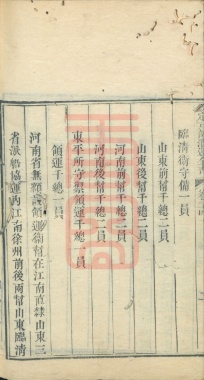 臨清衛守備一員
山東前幫千總二員
山東後幫千總二員
河南前幫千總二員
河南後幫千總二員
東平所守禦領運千總一員
領運千總一員
河南省無額設領運衛幫在江南直隸山東三
省派船協運內江南徐州前後兩幫山東臨清